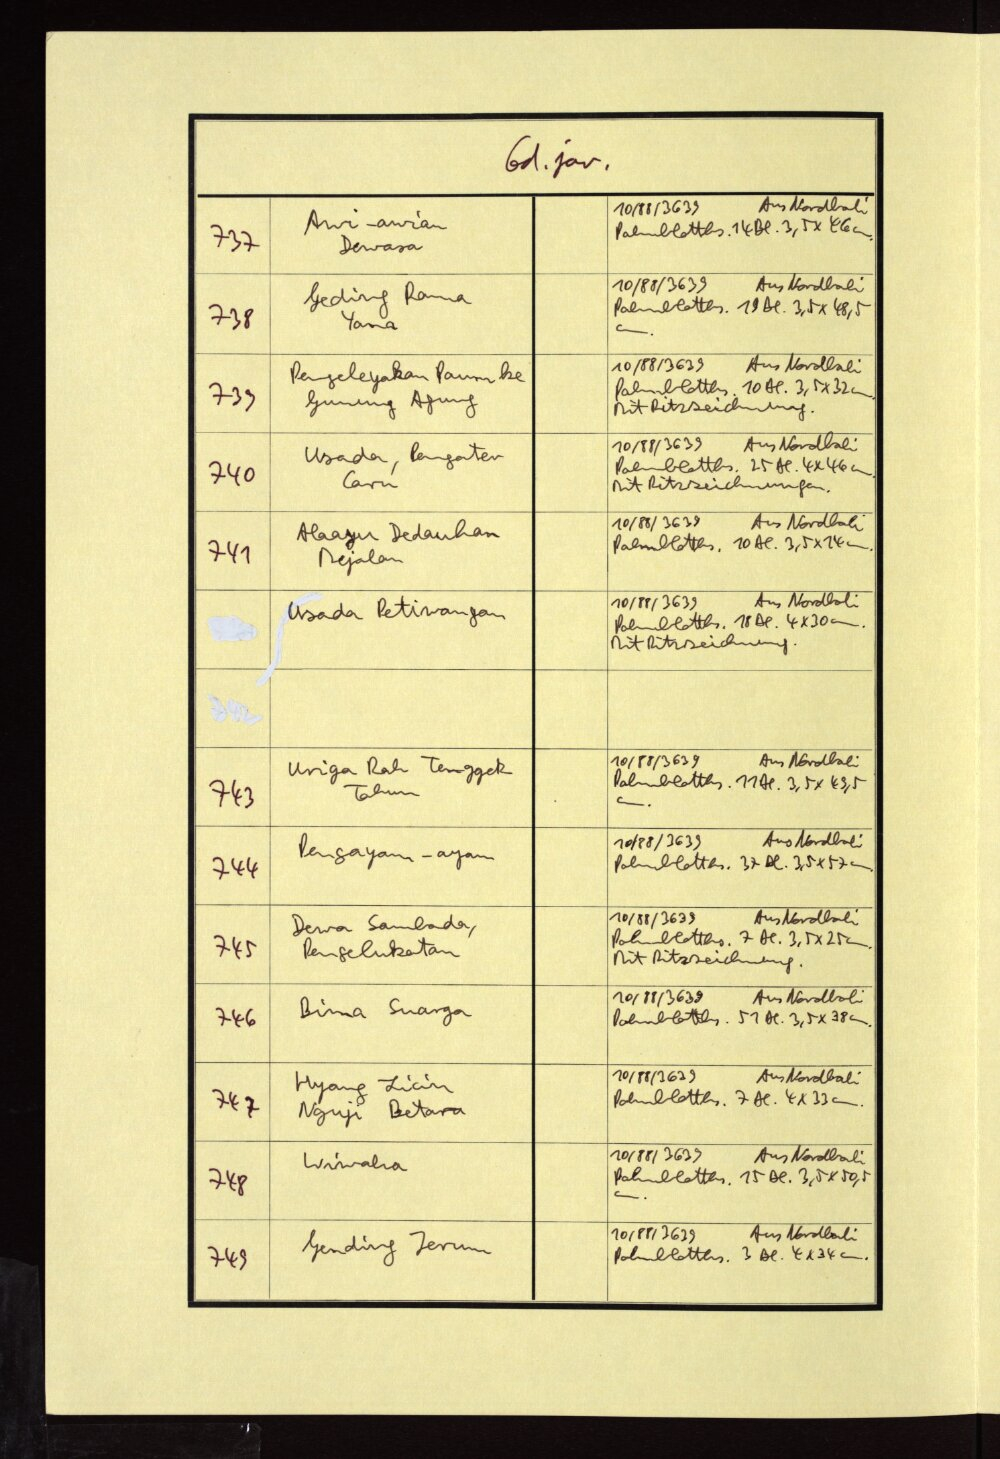 Cod. jav.
737
Awi-awian
Dewasa
10/88/3639 Aus Nordbali
Palmblatths. 14 Bl. 3,5 x 46 cm.
738
Geding Rama
Yana
10/88/3639 Aus Nordbali
Palmblatths. 19 Bl. 3,5 x 48,5
cm.
739
Pengeleyakan Paum ke
Gunung Agung
10/88/3639 Aus Nordbali
Palmblatths. 10 Bl. 3,5 x 32 cm.
Mit Ritzzeichnung.
740
Usada, Pengater
Caru
10/88/3639 Aus Nordbali
Palmblatths. 25 Bl. 4 x 46 cm.
Mit Ritzzeichnungen.
741
Alaayu Dedauhan
Mejalan
10/88/3639 Aus Nordbali
Palmblatths. 10 Bl. 3,5 x 24 cm.
Usada Petiwangan
10/88/3639 Aus Nordbali
Palmblatths. 18 Bl. 4 x 30 cm.
Mit Ritzzeichnung.
742
743
Wriga Rah Tenggek
Tahun
10/88/3639 Aus Nordbali
Palmblatths. 11 Bl. 3,5 x 49,5
cm.
744
Pengayam-ayam
10/88/3639 Aus Nordbali
Palmblatths. 37 Bl. 3,5 x 57 cm.
745
Dewa Sambada,
Pengelukatan
10/88/3639 Aus Nordbali
Palmblatths. 7 Bl. 3,5 x 25 cm.
Mit Ritzzeichnung.
746
Bima Suarga
10/88/3639 Aus Nordbali
Palmblatths. 51 Bl. 3,5 x 38 cm.
747
Hyang Licin
Nguji Betara
10/88/3639 Aus Nordbali
Palmblatths. 7 Bl. 4 x 33 cm.
748
Wiwaha
10/88/3639 Aus Nordbali
Palmblatths. 15 Bl. 3,5 x 50,5
cm.
749
Gending Jerum
10/88/3639 Aus Nordbali
Palmblatths. 3 Bl. 4 x 34 cm.